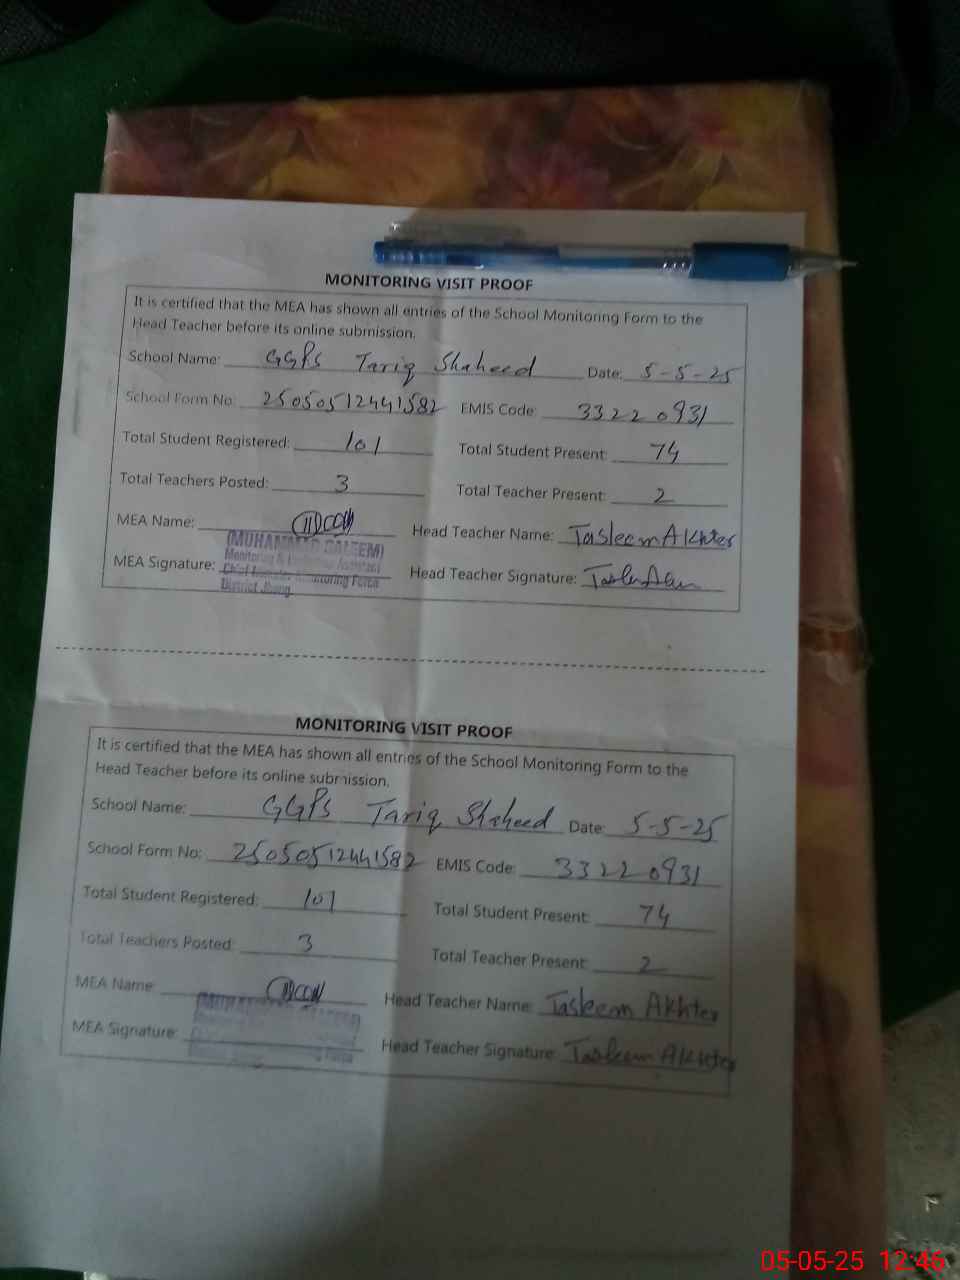 MONITORING VISIT PROOF
It is certified that the MEA has shown all entries of the School Monitoring Form to the
Head Teacher before its online submission.
School Name: GGPS Tariq Shaheed Date: 5-5-25
School Form No: 25050512441582 EMIS Code: 33220931
Total Student Registered: 101 Total Student Present: 74
Total Teachers Posted: 3 Total Teacher Present: 2
MEA Name: Head Teacher Name: Tasleem Akhter
(MUHAMMAD SALEEM)
Monitoring & Evaluation Assistant
MEA Signature: Head Teacher Signature:
Chief Minister Monitoring Force
District Jhang
MONITORING VISIT PROOF
It is certified that the MEA has shown all entries of the School Monitoring Form to the
Head Teacher before its online submission.
School Name: GGPS Tariq Shaheed Date: 5-5-25
School Form No: 25050512441582 EMIS Code: 33220931
Total Student Registered: 101 Total Student Present: 74
Total Teachers Posted: 3 Total Teacher Present: 2
MEA Name: Head Teacher Name: Tasleem Akhter
MEA Signature: Head Teacher Signature: Tasleem Akhter
05-05-25 12:46